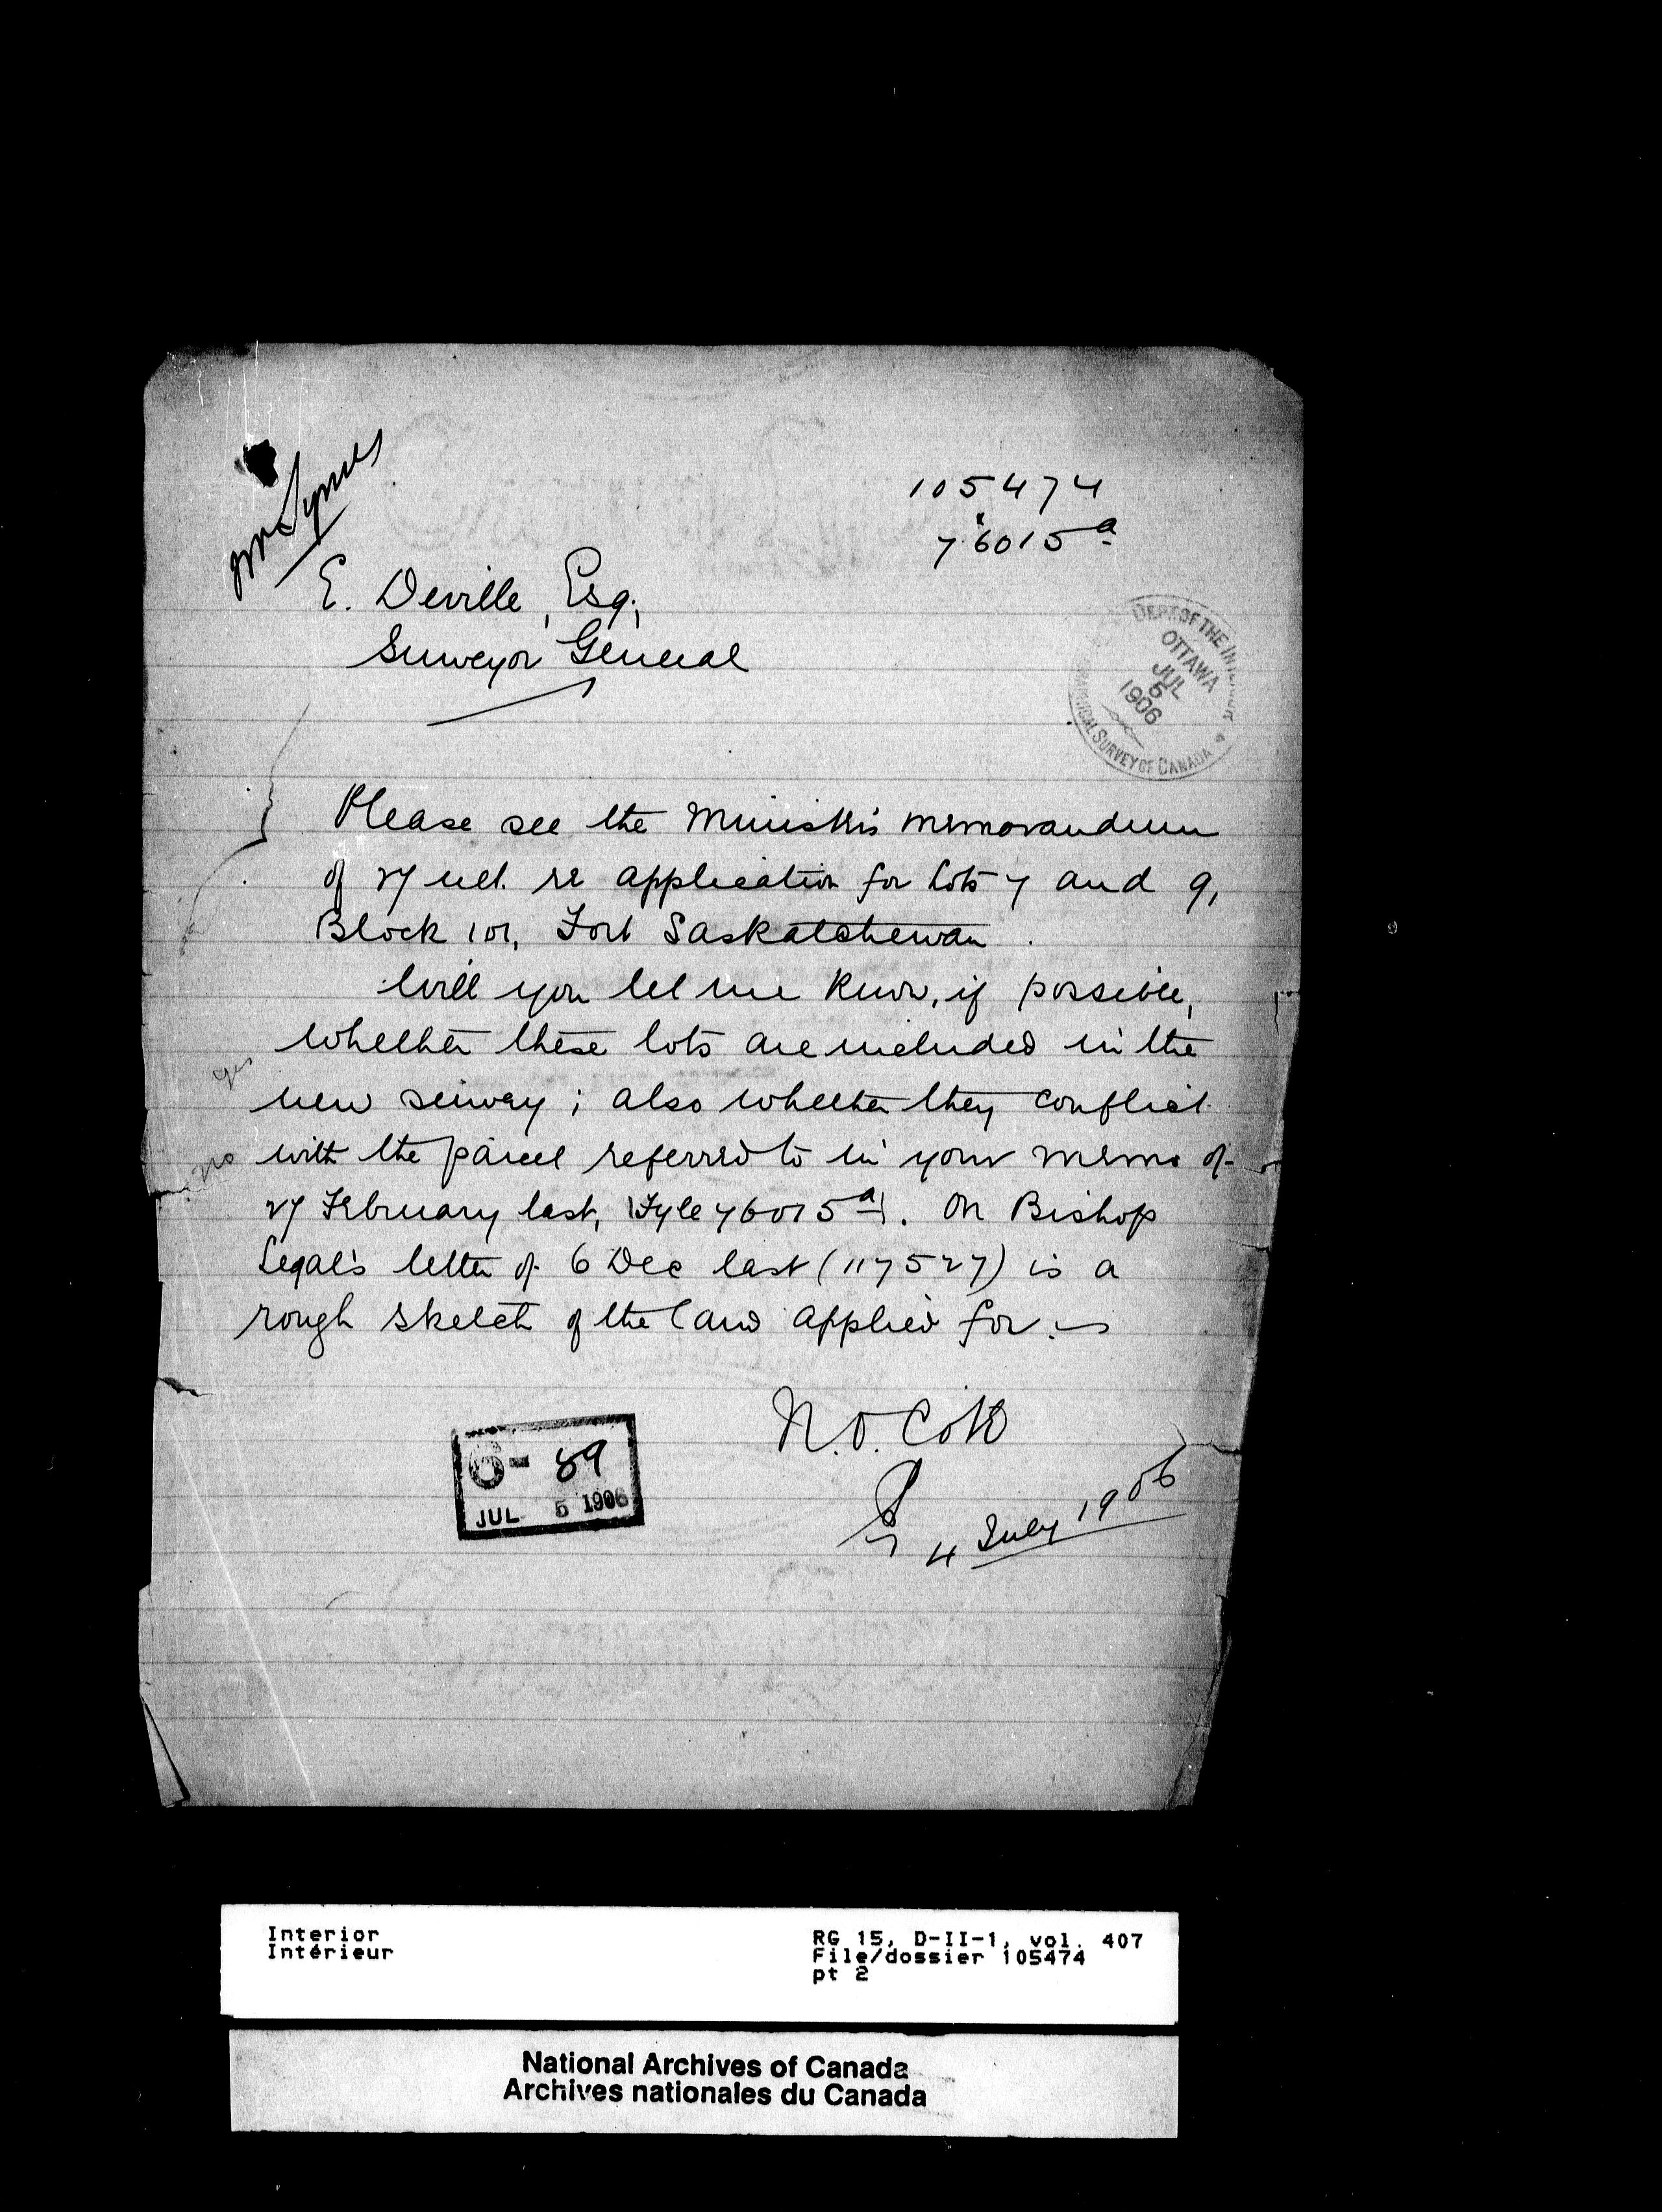 Mr Symes
105474
76015a
E. Deville, Esq.,
Surveyor General
DEPT. OF THE INTERIOR
OTTAWA
JUL
5
1906
SURVEY OF CANADA
Please see the Minister's memorandum
of 27 ult. re application for lots 7 and 9,
Block 101, Fort Saskatchewan.
Will you let me know, if possible,
whether these lots are included in the
yes
new survey; also whether they conflict
no
with the parcel referred to in your memo of
27 February last, Fyle 76015a. On Bishop
Legal's letter of 6 Dec last (117527) is a
rough sketch of the land applied for.
N.O. Coté
4 July 1906
6- 89
JUL 5 1906
Interior
Intérieur
RG 15, D-II-1, vol. 407
File/dossier 105474
pt 2
National Archives of Canada
Archives nationales du Canada